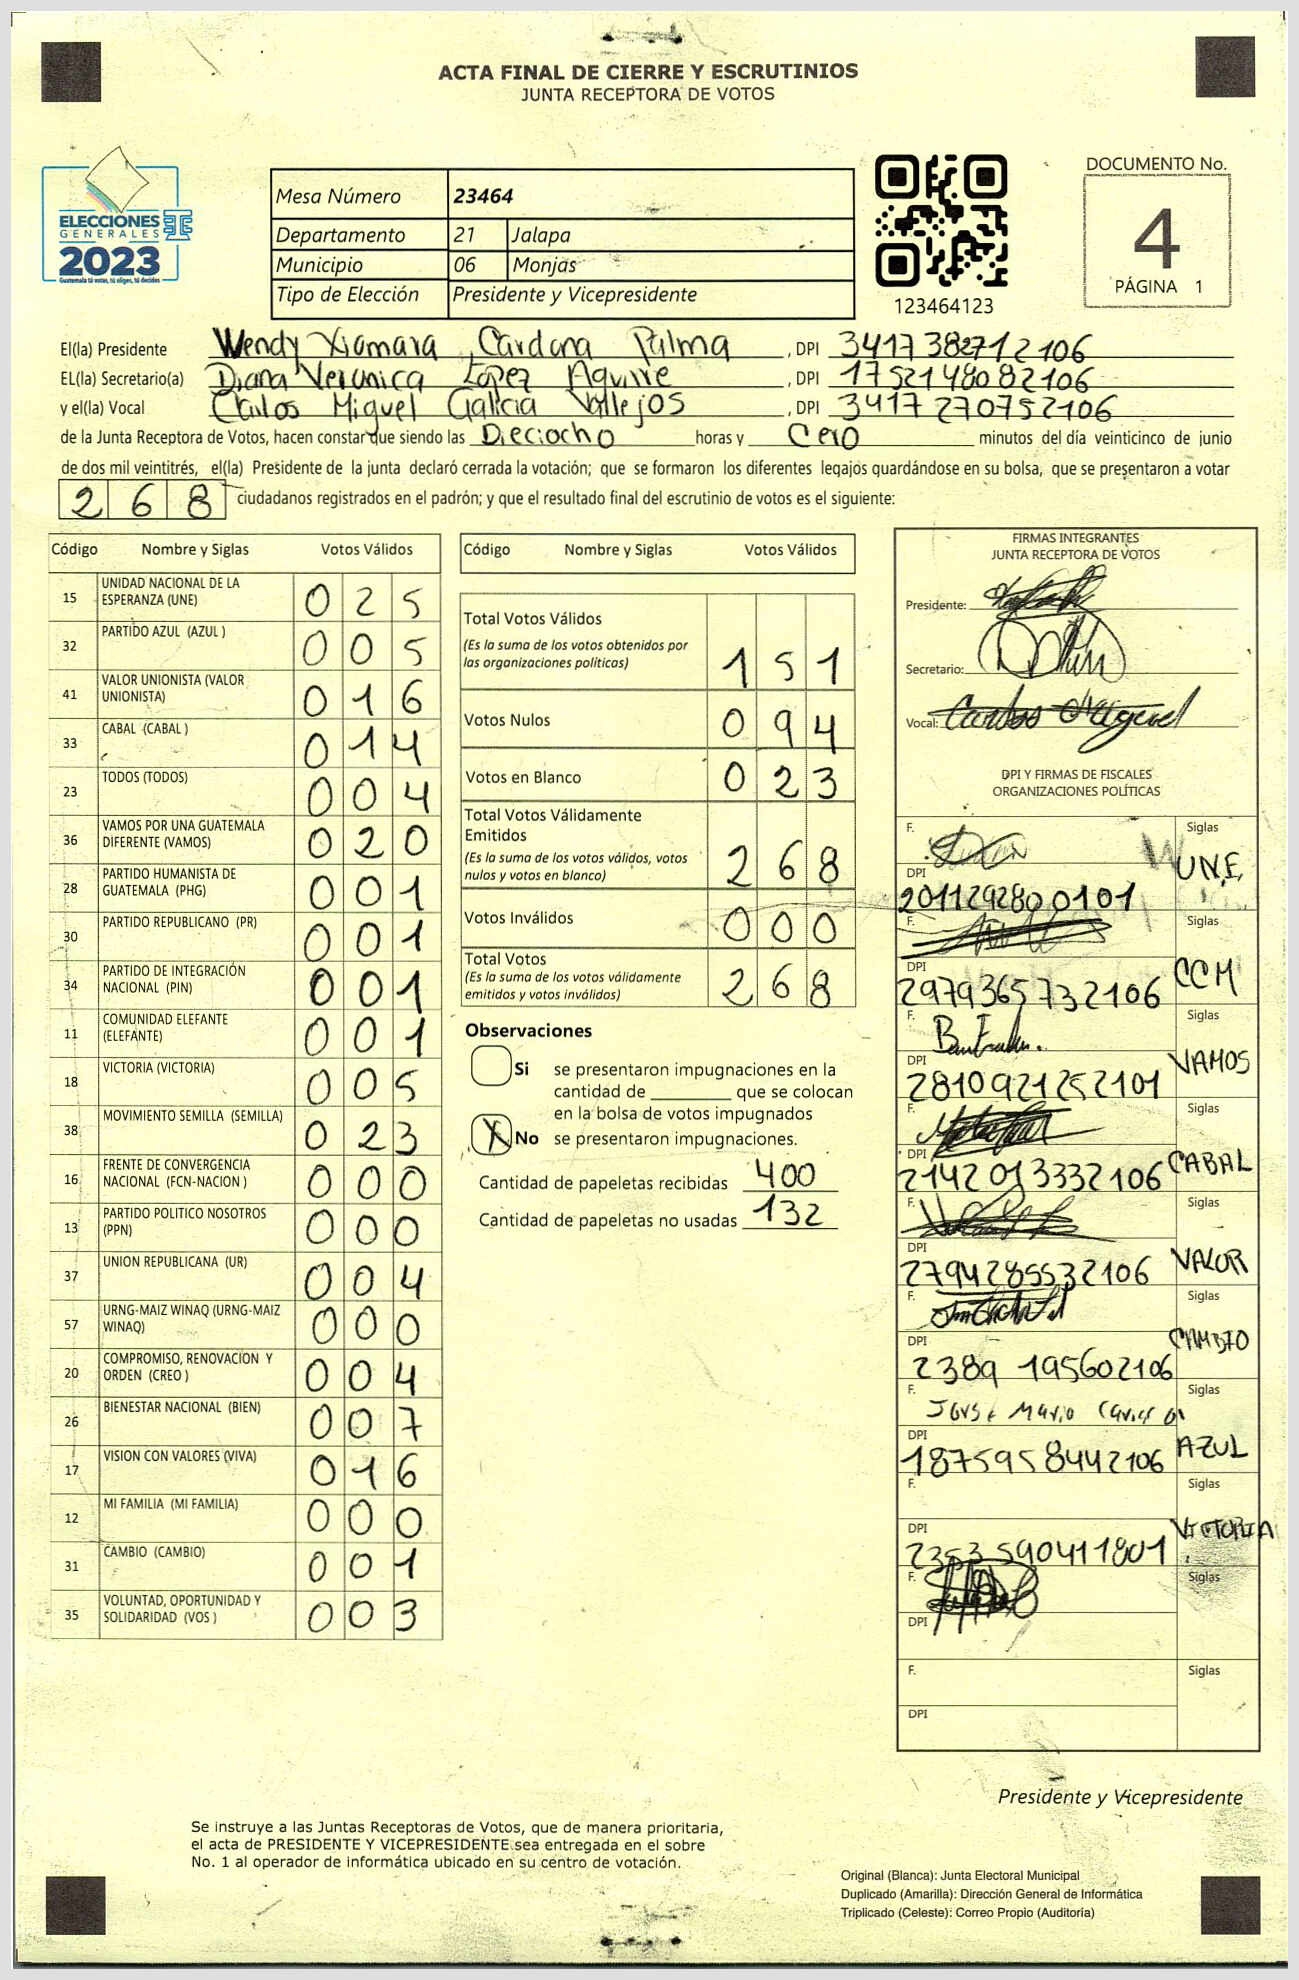 ACTA FINAL DE CIERRE Y ESCRUTINIOS
JUNTA RECEPTORA DE VOTOS
ELECCIONES
GENERALES
2023
Guatemala tú votas, tú eliges, tú decides
Mesa Número 23464
Departamento 21 Jalapa
Municipio 06 Monjas
Tipo de Elección Presidente y Vicepresidente
123464123
DOCUMENTO No.
4
PÁGINA 1
El(la) Presidente Wendy Xiomara Cardona Palma, DPI 3417382712106
EL(la) Secretario(a) Diana Veronica Lopez Aguirre, DPI 1752148082106
y el(la) Vocal Carlos Miguel Galicia Vallejos, DPI 3417270752106
de la Junta Receptora de Votos, hacen constar que siendo las Dieciocho horas y Cero minutos del día veinticinco de junio
de dos mil veintitrés, el(la) Presidente de la junta declaró cerrada la votación; que se formaron los diferentes legajos guardándose en su bolsa, que se presentaron a votar
268 ciudadanos registrados en el padrón; y que el resultado final del escrutinio de votos es el siguiente:
Código Nombre y Siglas Votos Válidos
15 UNIDAD NACIONAL DE LA ESPERANZA (UNE) 025
32 PARTIDO AZUL (AZUL ) 005
41 VALOR UNIONISTA (VALOR UNIONISTA) 016
33 CABAL (CABAL ) 014
23 TODOS (TODOS) 004
36 VAMOS POR UNA GUATEMALA DIFERENTE (VAMOS) 020
28 PARTIDO HUMANISTA DE GUATEMALA (PHG) 001
30 PARTIDO REPUBLICANO (PR) 001
34 PARTIDO DE INTEGRACIÓN NACIONAL (PIN) 001
11 COMUNIDAD ELEFANTE (ELEFANTE) 001
18 VICTORIA (VICTORIA) 005
38 MOVIMIENTO SEMILLA (SEMILLA) 023
16 FRENTE DE CONVERGENCIA NACIONAL (FCN-NACION ) 000
13 PARTIDO POLITICO NOSOTROS (PPN) 000
37 UNION REPUBLICANA (UR) 004
57 URNG-MAIZ WINAQ (URNG-MAIZ WINAQ) 000
20 COMPROMISO, RENOVACION Y ORDEN (CREO ) 004
26 BIENESTAR NACIONAL (BIEN) 007
17 VISION CON VALORES (VIVA) 016
12 MI FAMILIA (MI FAMILIA) 000
31 CAMBIO (CAMBIO) 001
35 VOLUNTAD, OPORTUNIDAD Y SOLIDARIDAD (VOS ) 003
Código Nombre y Siglas Votos Válidos
Total Votos Válidos
(Es la suma de los votos obtenidos por
las organizaciones politicas) 151
Votos Nulos 094
Votos en Blanco 023
Total Votos Válidamente
Emitidos
(Es la suma de los votos válidos, votos
nulos y votos en blanco) 268
Votos Inválidos 000
Total Votos
(Es la suma de los votos válidamente
emitidos y votos inválidos) 268
Observaciones
Si se presentaron impugnaciones en la
cantidad de ________ que se colocan
en la bolsa de votos impugnados
X No se presentaron impugnaciones.
Cantidad de papeletas recibidas 400
Cantidad de papeletas no usadas 132
FIRMAS INTEGRANTES
JUNTA RECEPTORA DE VOTOS
Presidente:
Secretario:
Vocal: Carlos Miguel
DPI Y FIRMAS DE FISCALES
ORGANIZACIONES POLÍTICAS
F. Siglas U.N.E.
DPI 2011292800101
F. Siglas CCM
DPI 2979365732106
F. Siglas VAMOS
DPI 2810921252101
F. Siglas CABAL
DPI 2142013332106
F. Siglas VALOR
DPI 2794285532106
F. Siglas CAMBIO
DPI 2389 195602106
F. Mario Siglas AZUL
DPI 1875958442106
F. Siglas VICTORIA
DPI 2353590411801
F. Siglas
DPI
F. Siglas
DPI
Presidente y Vicepresidente
Se instruye a las Juntas Receptoras de Votos, que de manera prioritaria,
el acta de PRESIDENTE Y VICEPRESIDENTE sea entregada en el sobre
No. 1 al operador de informática ubicado en su centro de votación.
Original (Blanca): Junta Electoral Municipal
Duplicado (Amarilla): Dirección General de Informática
Triplicado (Celeste): Correo Propio (Auditoría)